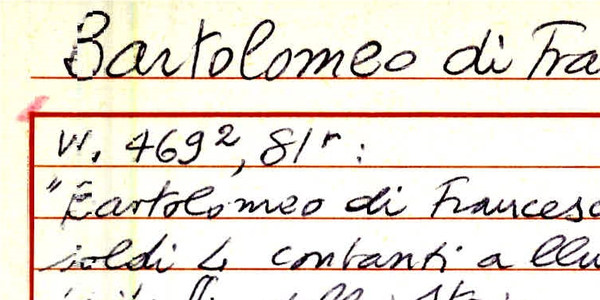 Bartolomeo di Fra
W. 469², 81r:
"Bartolomeo di Francesc
soldi 4 contanti a llu